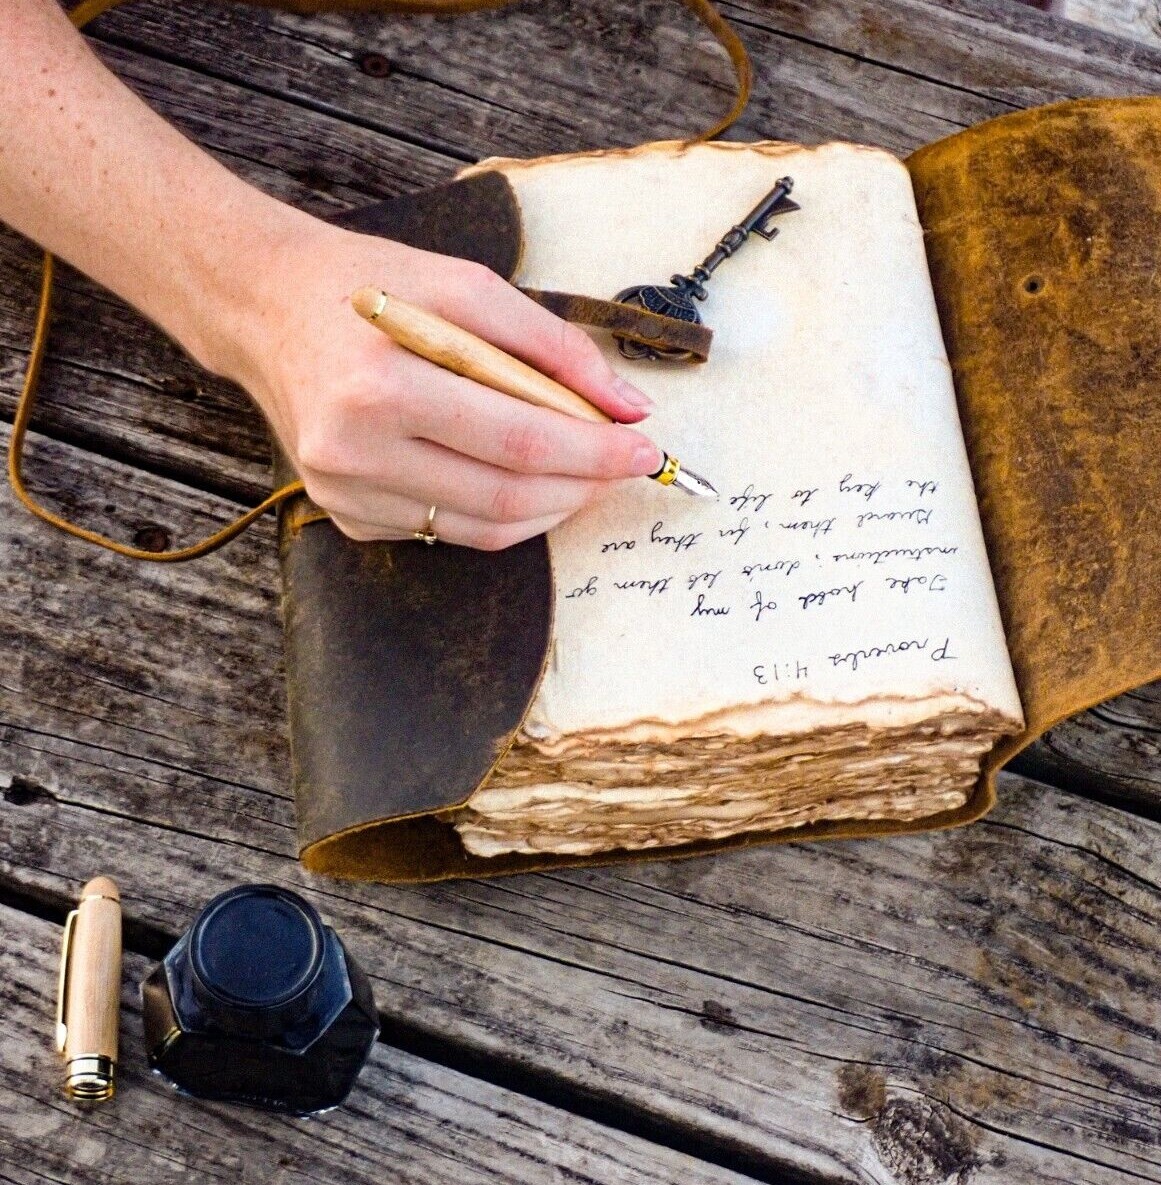 Proverbs 4:13
Take hold of my
instructions; don't let them go.
Guard them, for they are
the key to life